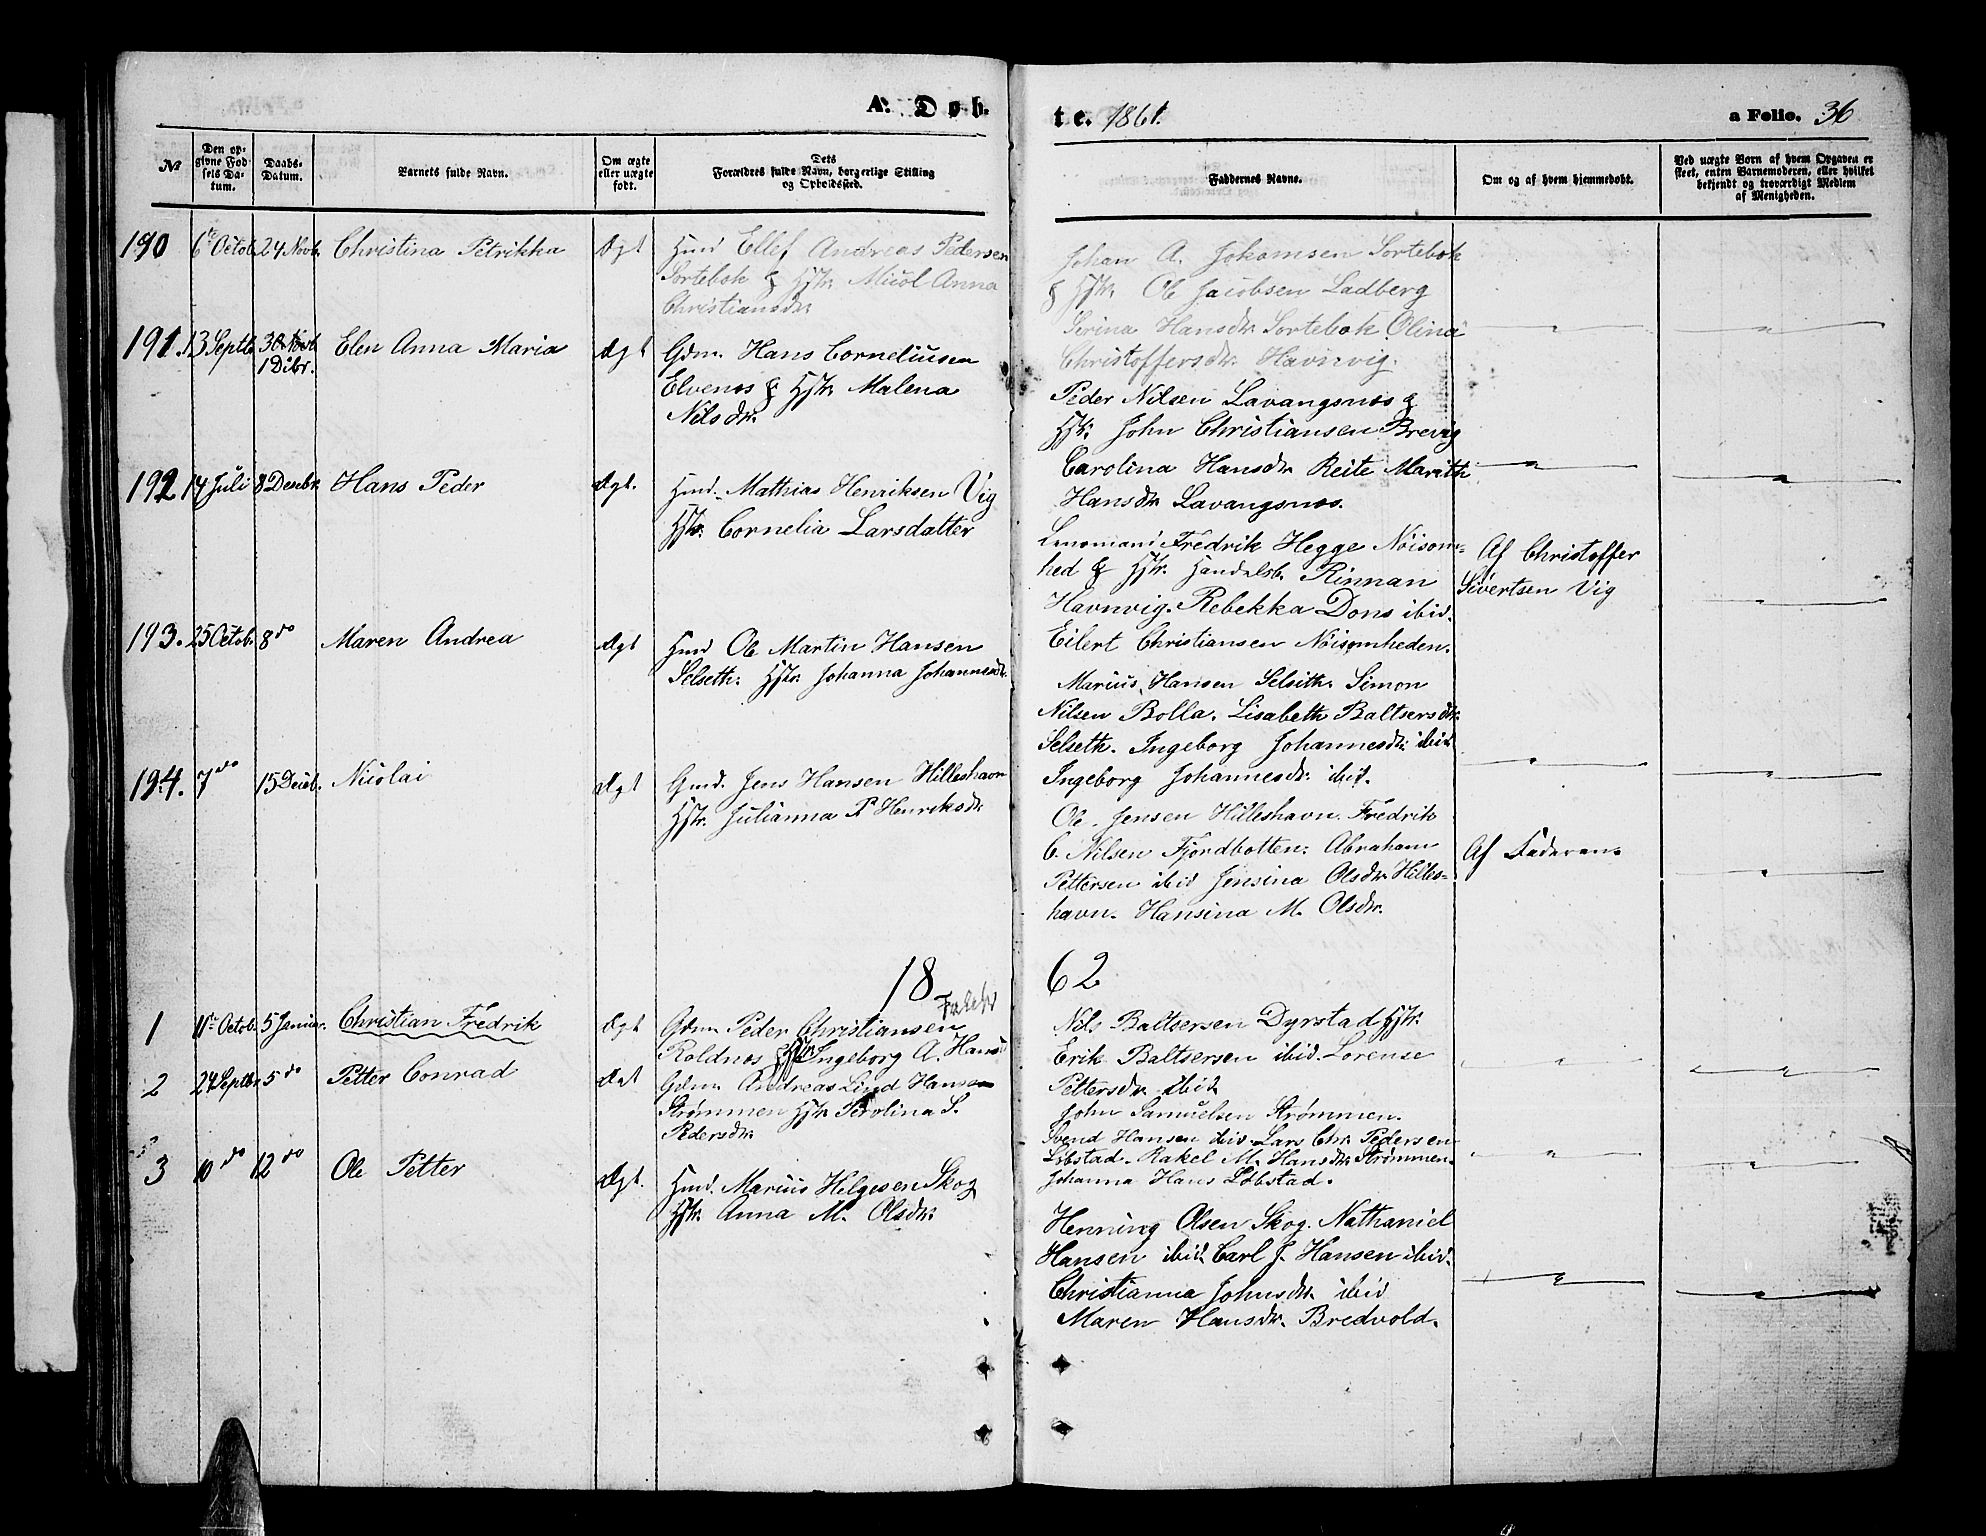 A. Døb-
te. 1861.
a Folio. 36
№
Den op-
givne Fød-
sels Da-
tum.
Daabs-
Datum.
Barnets fulde Navn.
Om ægte
eller uægte
født.
Dets
Forældres fulde Navn, borgerlige Stilling
og Opholdssted.
Faddernes Navne.
Om og af hvem hjemmedøbt.
Ved uægte Børn af hvem Opgaven er
skeet, enten Barnemoderen, eller hvilket
bekjendt og troværdigt Medlem
af Menigheden.
190 6te Octob. 24 Novb. Christina Petrikka Ægt
Hmd Ellef Andreas Pedersen
Sortebok & Hstr. Anna
Christiansdr.
Johan A. Sortebok
& Hstr. Ole Jacobsen Ladberg
Serina Hansdr. Sortebok Olina
Christoffersdr. Havnvig.
191. 13 Septb. 30 Novb. Elen Anna Maria Ægt
1 Dcbr.
Gdm. Hans Corneliusen
Elvenes & Hstr. Malena
Nilsdr.
Peder Nilsen Lavangsnæs &
Hstr. John Christiansen Brevig
Carolina Hansdr. Reite Marith
Hansdr. Lavangsnæs.
192 14 Juli 8 Decbr. Hans Peder Ægt.
Hmd. Mathias Henriksen Vig
Hstr. Cornelia Larsdatter
Lensmand Fredrik Hegge Nöisom-
hed & Hstr. Handelsb. Rinnan
Havnvig. Rebekka Dons ibid.
Eilert Christiansen Nöisomheden.
Af Christoffer
Sivertsen Vig
193. 25 Octob. 8 do Maren Andrea Ægt
Hmd Ole Martin Hansen
Selseth. Hstr. Johanna Johannesdr.
Marius Hansen Selseth. Simon
Nilsen Bolla. Lisabeth Baltsersdr.
Selseth. Ingeborg Johannesdr. ibid
Ingeborg Johannesdr. ibid.
194. 7 do 15 Decb. Nicolai Ægt
Gmd. Jens Hansen Hilleshavn
Hstr. Julianna P Henriksdr.
Ole Jensen Hilleshavn. Fredrik
C. Nilsen Fjordbotten. Abraham
Pettersen ibid Jensina Olsdr. Hilles-
havn. Hansina M. Olsdr.
Af Faderen.
18 62
1 11te Octob. 5 Januar. Christian Fredrik Ægt
Gdm Peder Christiansen
Roldnæs & Hstr Ingeborg A. Hans
Nils Baltsersen Dyrstad Hstr.
Erik Baltsersen ibid. Lorense
Pettersdr. ibid
2 24 Septbr. 5 do Petter Conrad Ægt
Gdm Andreas Lind Hansen
Strømmen Hstr. Serolina S.
Pedersdr.
John Samuelsen Strømmen.
Svend Hansen ibid. Lars Chr. Pedersen
Löbstad. Rakel M. Hansdr. Strømmen.
Johanna Hans Löbstad.
3 10 do 12 do Ole Petter Ægt.
Hmd. Marius Helgesen Skog
Hstr. Anna M. Olsdr.
Henning Olsen Skog. Nathaniel
Hansen ibid. Carl J. Hansen ibid.
Christianna Johnsdr. ibid
Maren Hansdr. Bredvold.